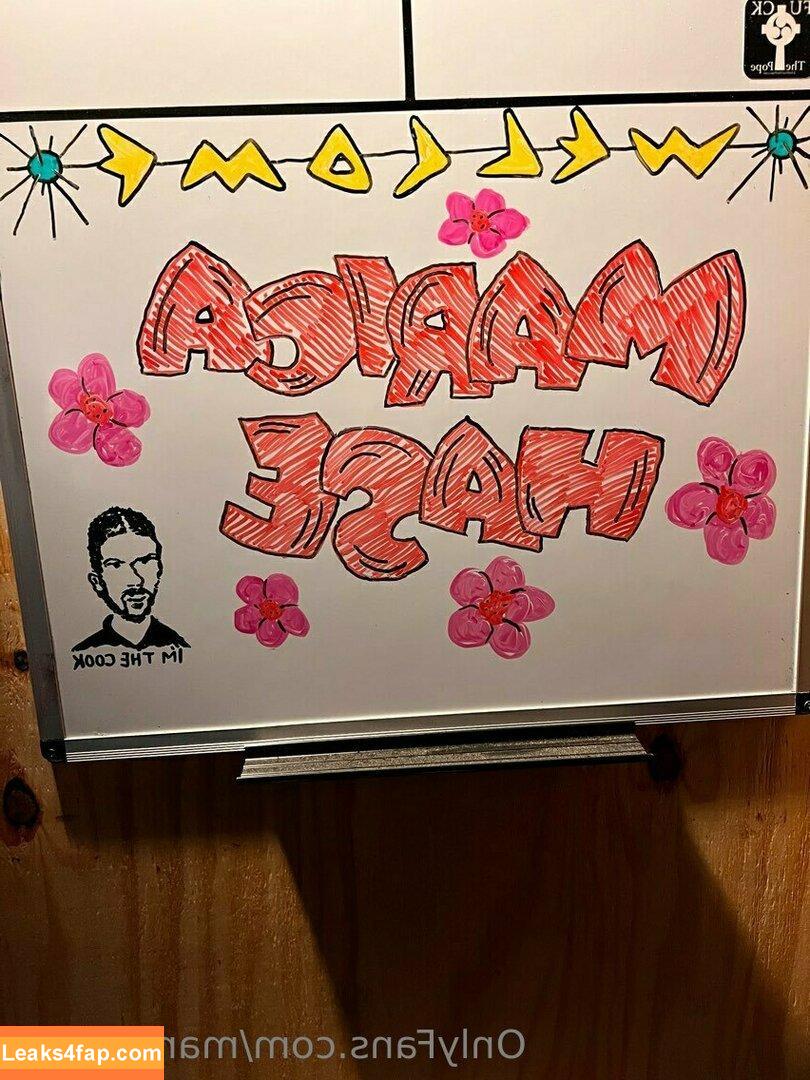 FU CK
The Pope
WELCOME
MARICA
HASE
I'M THE COOK
OnlyFans.com/mar
Leaks4fap.com